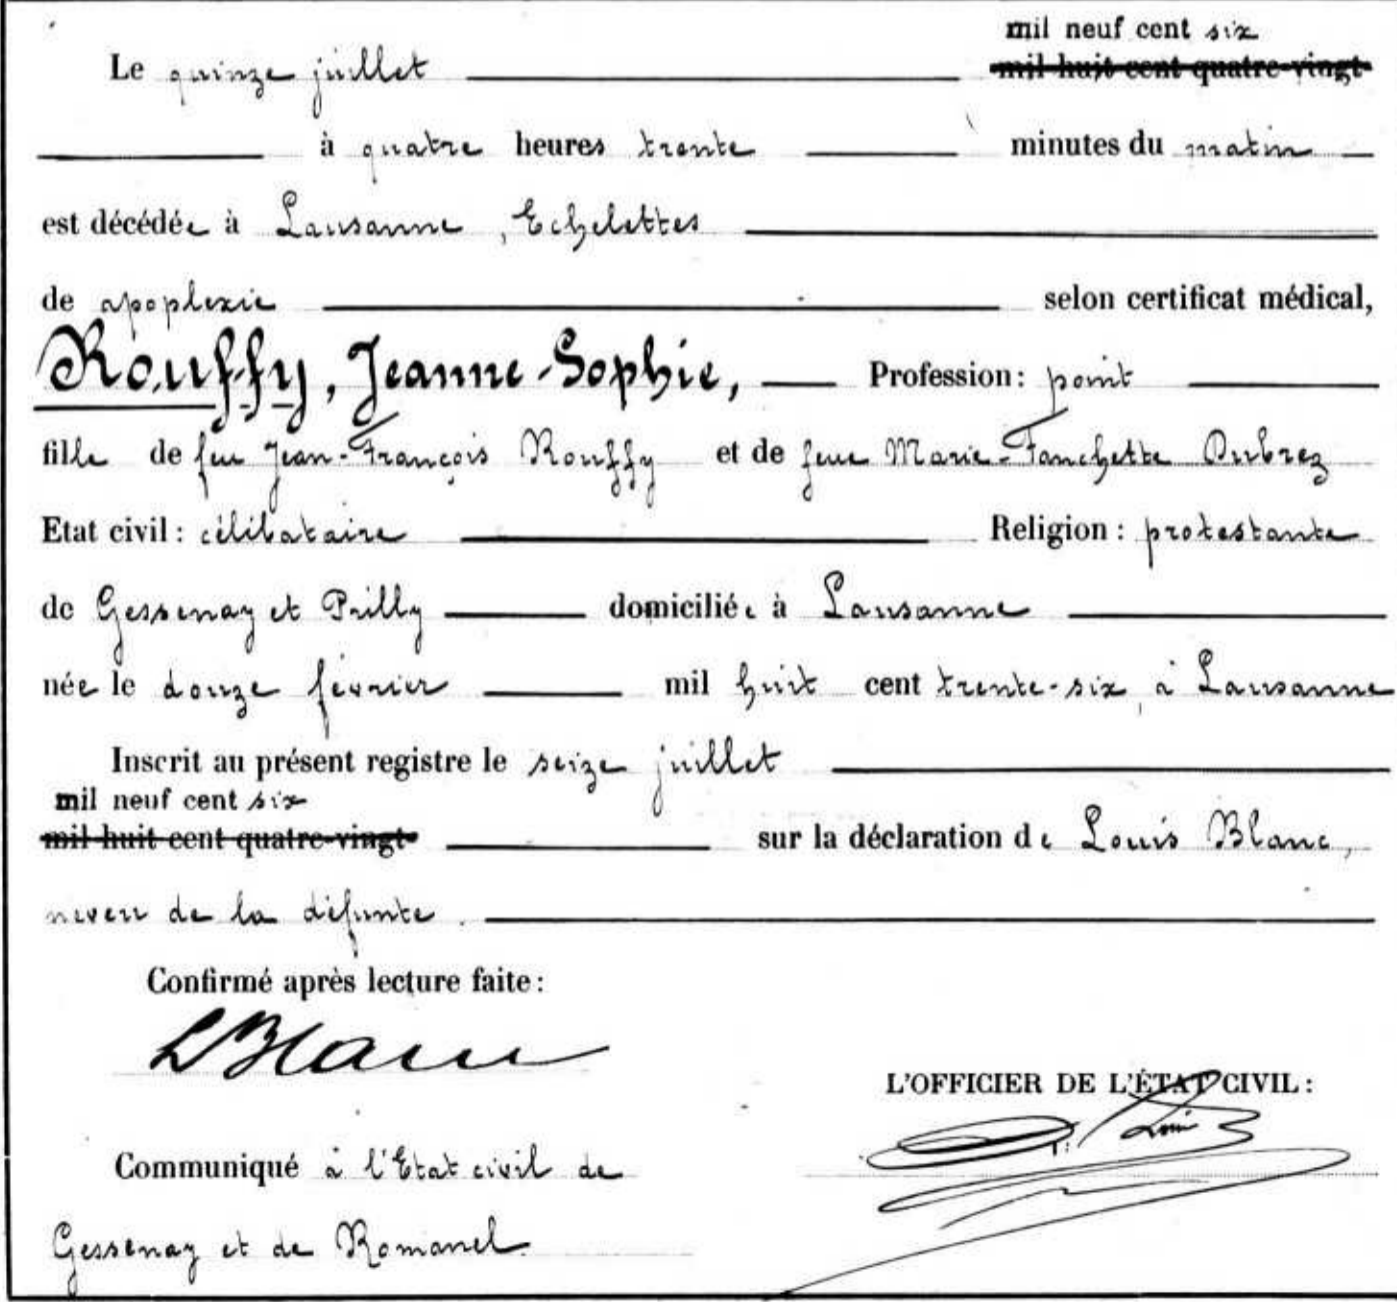 mil neuf cent six
Le quinze juillet mil huit cent quatre-vingt
à quatre heures trente minutes du matin
est décédée à Lausanne, Echelettes
de apoplexie selon certificat médical,
Rouffy, Jeanne-Sophie, Profession: point
fille de feu Jean-François Rouffy et de feue Marie-Fanchette Dubrez
Etat civil: célibataire Religion: protestante
de Gessenay et Prilly domiciliée à Lausanne
née le douze février mil huit cent trente-six, à Lausanne
Inscrit au présent registre le seize juillet
mil neuf cent six
mil huit cent quatre-vingt sur la déclaration de Louis Blanc,
neveu de la défunte.
Confirmé après lecture faite:
L Blanc
L'OFFICIER DE L'ÉTAT CIVIL:
Communiqué à l'Etat civil de
Gessenay et de Romanel.